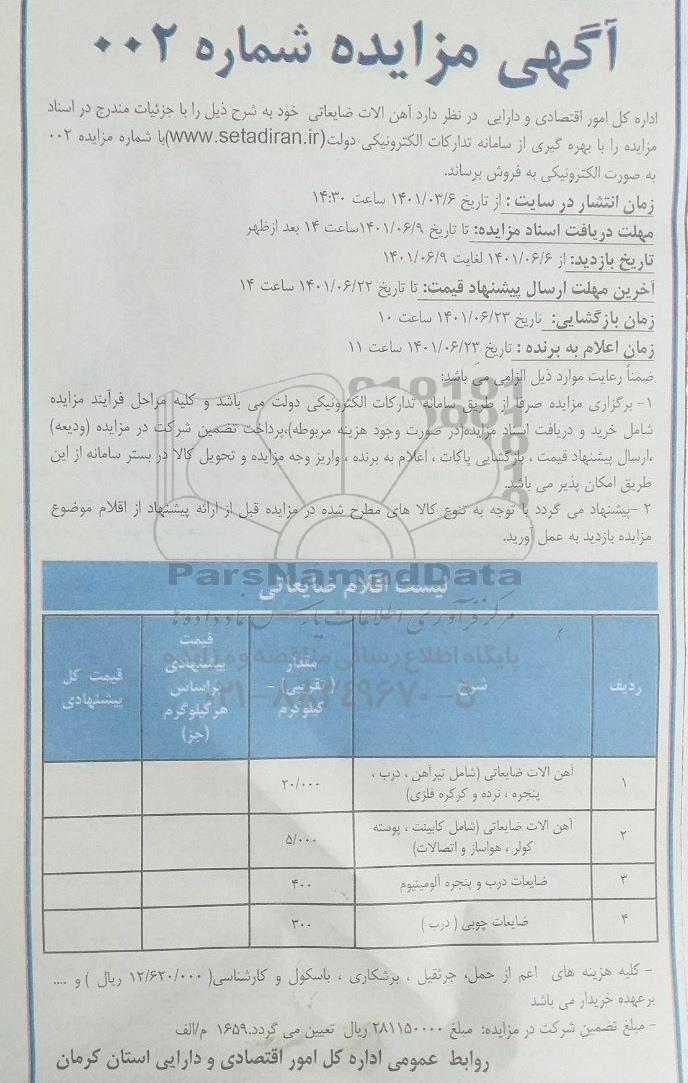 آگهی مزایده شماره ۰۰۲
اداره کل امور اقتصادی و دارایی در نظر دارد آهن الات ضایعاتی خود به شرح ذیل را با جزئیات مندرج در اسناد
مزایده را با بهره گیری از سامانه تدارکات الکترونیکی دولت(www.setadiran.ir)با شماره مزایده ۰۰۲
به صورت الکترونیکی به فروش برساند.
زمان انتشار در سایت : از تاریخ ۱۴۰۱/۰۳/۶ ساعت ۱۴:۳۰
مهلت دریافت اسناد مزایده: تا تاریخ ۱۴۰۱/۰۶/۹ساعت ۱۴ بعد ازظهر
تاریخ بازدید: از ۱۴۰۱/۰۶/۶ لغایت ۱۴۰۱/۰۶/۹
آخرین مهلت ارسال پیشنهاد قیمت: تا تاریخ ۱۴۰۱/۰۶/۲۲ ساعت ۱۴
زمان بازگشایی: تاریخ ۱۴۰۱/۰۶/۲۳ ساعت ۱۰
زمان اعلام به برنده : تاریخ ۱۴۰۱/۰۶/۲۳ ساعت ۱۱
ضمناً رعایت موارد ذیل الزامی می باشد:
۱- برگزاری مزایده صرفاً از طریق سامانه تدارکات الکترونیکی دولت می باشد و کلیه مراحل فرآیند مزایده
شامل خرید و دریافت اسناد مزایده(در صورت وجود هزینه مربوطه)،پرداخت تضمین شرکت در مزایده (ودیعه)
،ارسال پیشنهاد قیمت ، بازگشایی پاکات ، اعلام به برنده ، واریز وجه مزایده و تحویل کالا در بستر سامانه از این
طریق امکان پذیر می باشد.
۲ -پیشنهاد می گردد با توجه به تنوع کالا های مطرح شده در مزایده قبل از ارائه پیشنهاد از اقلام موضوع
مزایده بازدید به عمل آورید.
ParsNamadData
لیست اقلام ضایعاتی
مرکز فرآوری اطلاعات پارس نماد داده ها
پایگاه اطلاع رسانی مناقصه و مزایده
۰۲۱-۸۸۳۴۹۶۷۰-۵
ردیف شرح مقدار (تقریبی) - کیلوگرم قیمت پیشنهادی براساس هرکیلوگرم (جز) قیمت کل پیشنهادی
۱ آهن الات ضایعاتی (شامل تیرآهن ، درب ، پنجره ، نرده و کرکره فلزی) ۲۰/۰۰۰
۲ آهن الات ضایعاتی (شامل کابینت ، پوسته کولر ، هواساز و اتصالات) ۵/۰۰۰
۳ ضایعات درب و پنجره آلومینیوم ۴۰۰
۴ ضایعات چوبی ( درب ) ۳۰۰
- کلیه هزینه های اعم از حمل، جرثقیل ، برشکاری ، باسکول و کارشناسی( ۱۲/۶۲۰/۰۰۰ ریال ) و ....
برعهده خریدار می باشد
- مبلغ تضمین شرکت در مزایده: مبلغ ۲۸۱۱۵۰۰۰۰ ریال تعیین می گردد.۱۶۵۹ م/الف
روابط عمومی اداره کل امور اقتصادی و دارایی استان کرمان